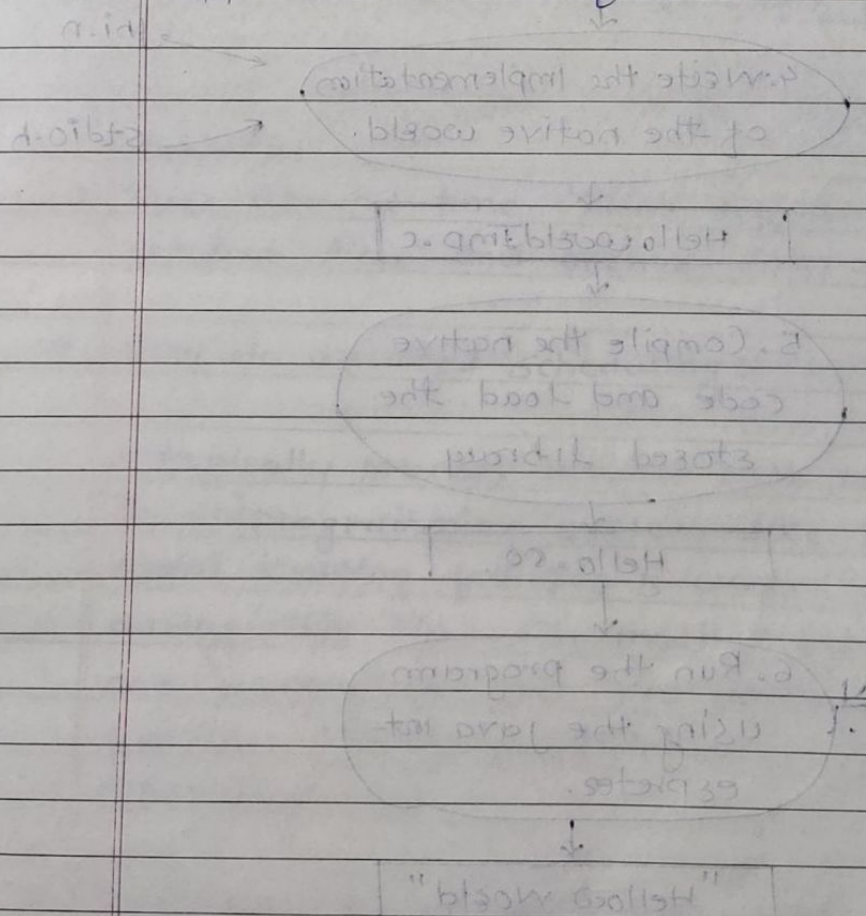 4. Write the Implementation
of the native world.
stdio.h
HelloworldImp.c
5. Compile the native
code and load the
stored library
Hello.so
6. Run the program
using the java int-
erpreter.